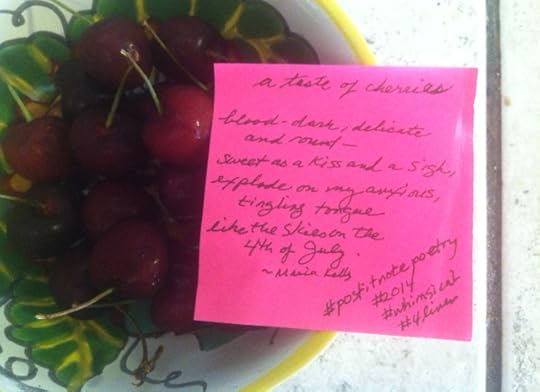 a taste of cherries
blood-dark, delicate
and round—
sweet as a kiss and a sigh,
explode on my anxious,
tingling tongue
like the skies on the
4th of July.
~ Maria Kelly
#postitnotepoetry
#2014
#whimsical
#4lines